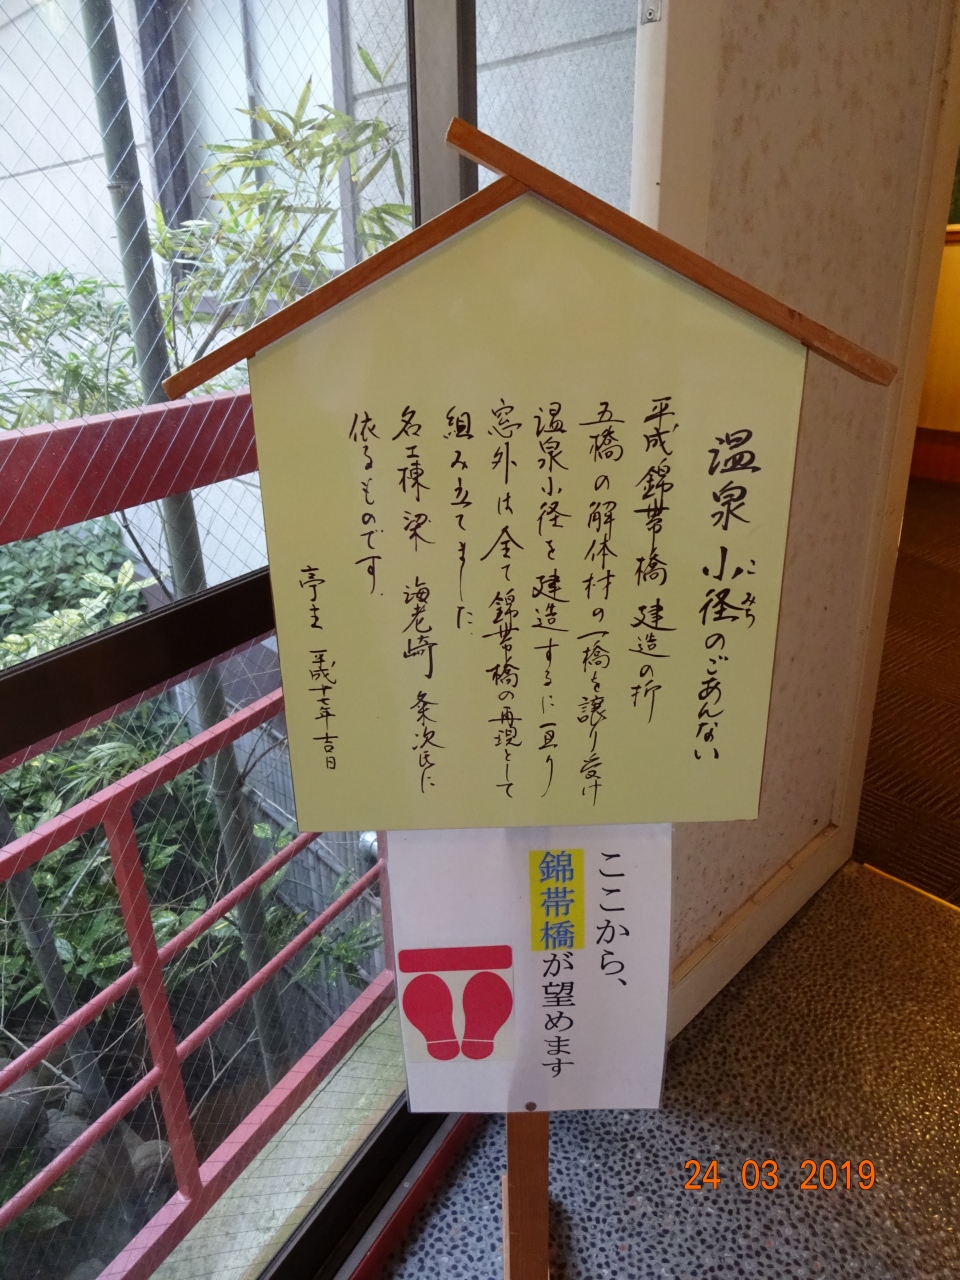 温泉小径のごあんない
こみち
平成錦帯橋建造の折
五橋の解体材の一橋を譲り受け
温泉小径を建造するに亘り
窓外は全て錦帯橋の再現として
組み立てました
名工棟梁 海老崎粂次氏に
依るものです.
亭主 平成十七年吉日
ここから、
錦帯橋が望めます
24 03 2019